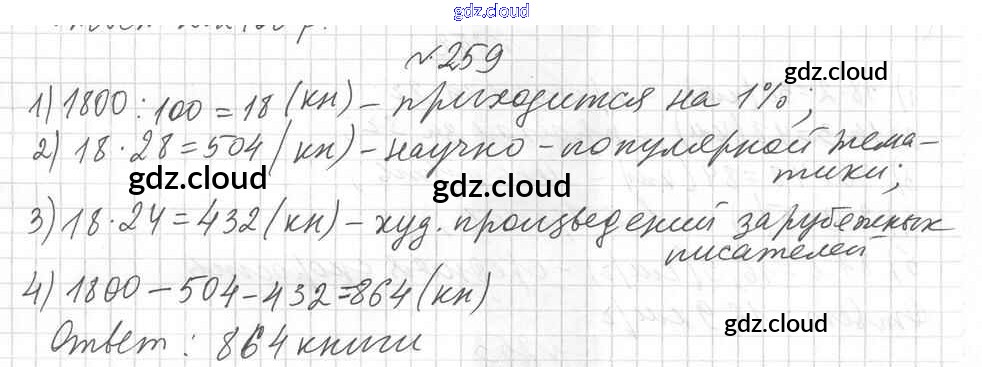 gdz.cloud
№259
gdz.cloud
1) 1800 : 100 = 18 (кн) – приходится на 1%;
2) 18 · 28 = 504 (кн) – научно – популярной тема-
тики;
gdz.cloud
gdz.cloud
gdz.cloud
3) 18 · 24 = 432 (кн) – худ. произведений зарубежных
писателей
4) 1800 – 504 – 432 = 864 (кн)
gdz.cloud
Ответ: 864 книги